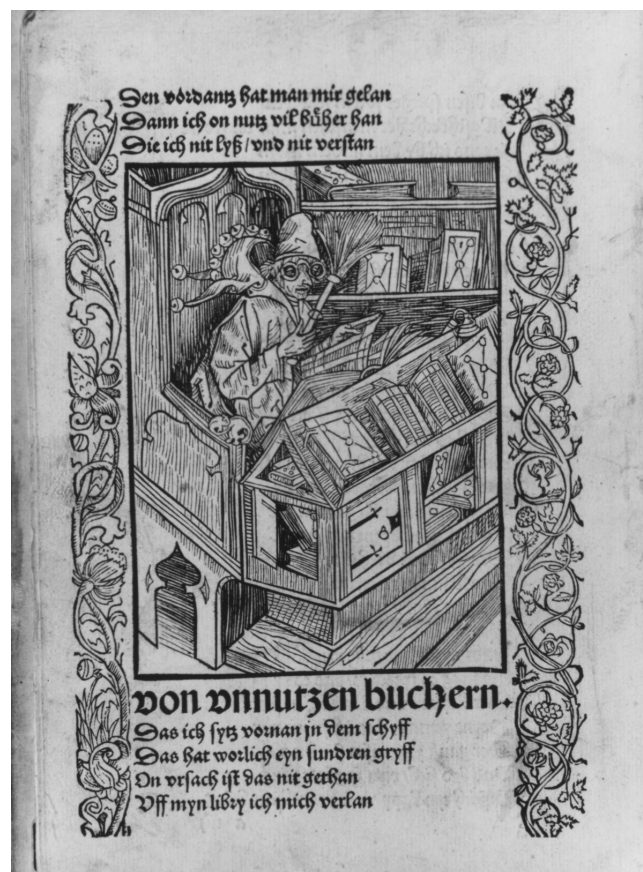 Den vordantz hat man mir gelan
Dann ich on nutz vil bücher han
Die ich nit lyß / vnd nit verstan
von vnnutzen buchern.
Das ich sytz vornan jn dem schyff
Das hat worlich eyn sundren gryff
On vrsach ist das nit gethan
Vff myn libry ich mich verlan